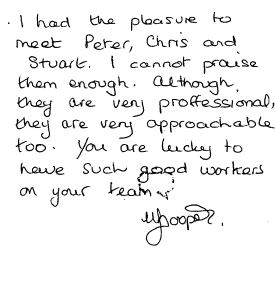 . I had the pleasure to
meet Peter, Chris and
Stuart. I cannot praise
them enough. Although,
they are very proffessional,
they are very approachable
too. You are lucky to
have such good workers
on your team.